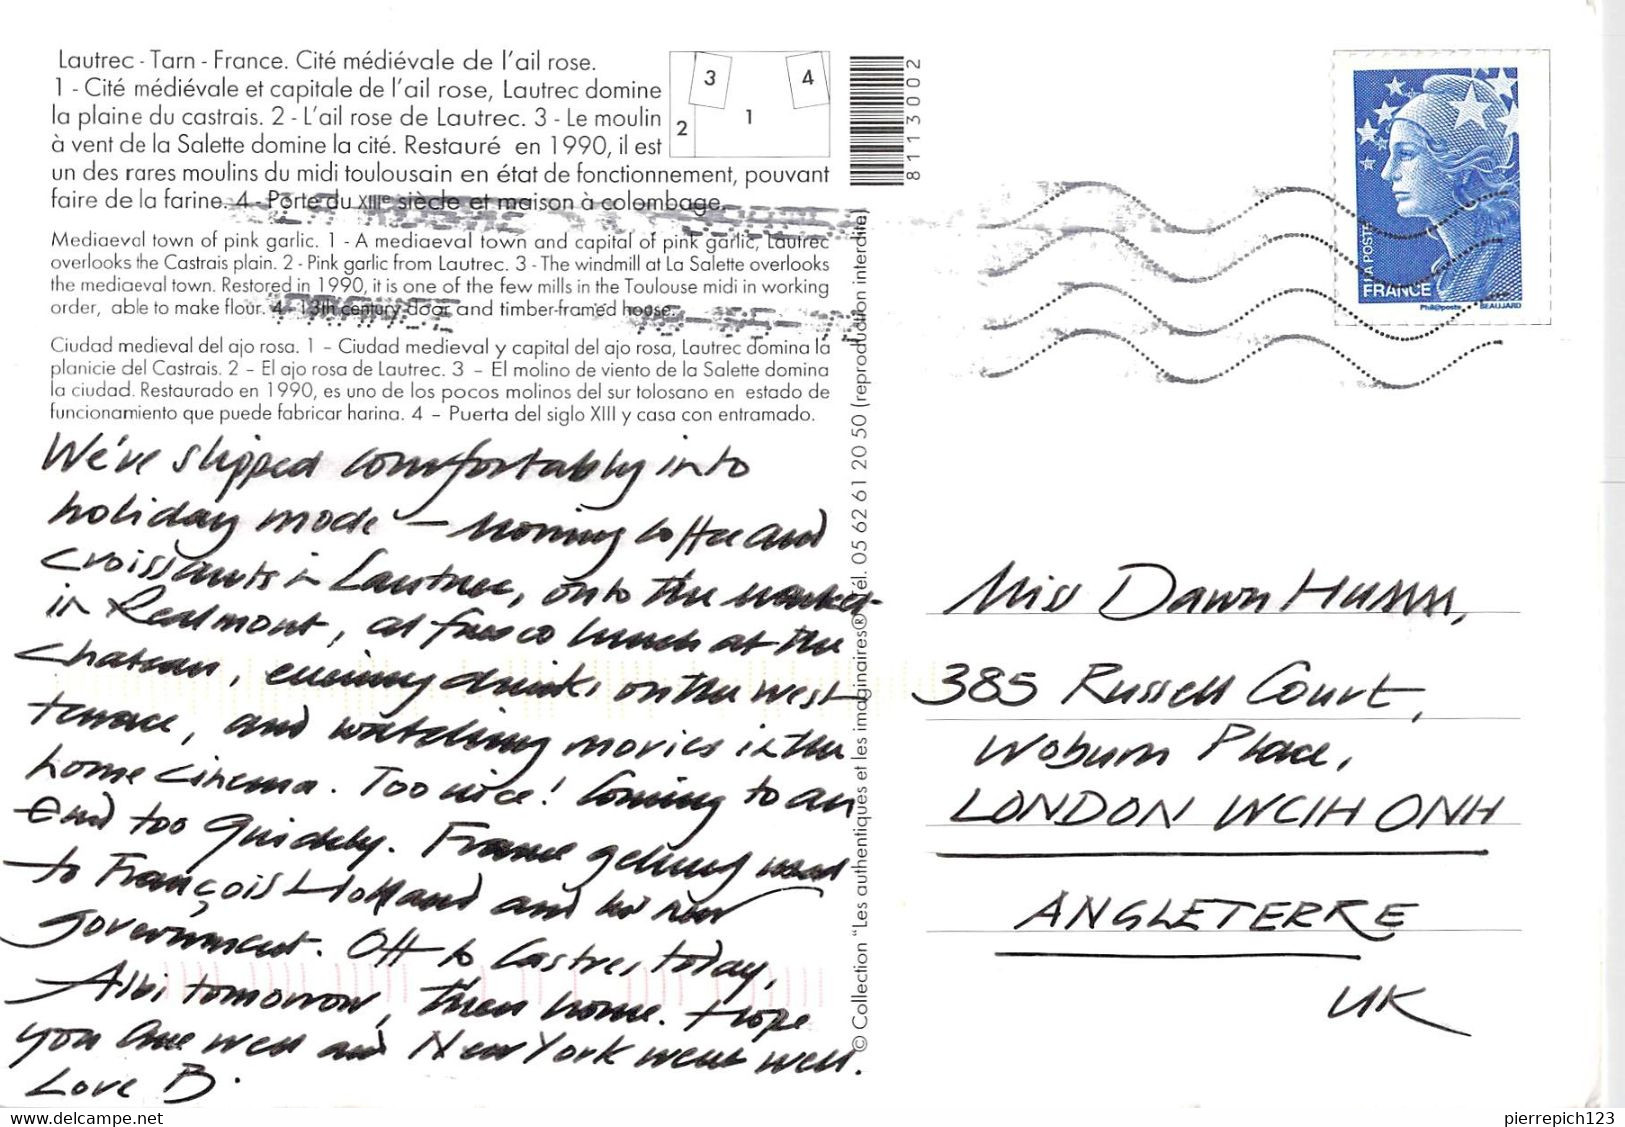 Lautrec - Tarn - France. Cité médiévale de l'ail rose.
1 - Cité médiévale et capitale de l'ail rose, Lautrec domine
la plaine du castrais. 2 - L'ail rose de Lautrec. 3 - Le moulin
à vent de la Salette domine la cité. Restauré en 1990, il est
un des rares moulins du midi toulousain en état de fonctionnement, pouvant
faire de la farine. 4 - Porte du XIIIe siècle et maison à colombage.
3
4
1
2
Mediaeval town of pink garlic. 1 - A mediaeval town and capital of pink garlic, Lautrec
overlooks the Castrais plain. 2 - Pink garlic from Lautrec. 3 - The windmill at La Salette overlooks
the mediaeval town. Restored in 1990, it is one of the few mills in the Toulouse midi in working
order, able to make flour. 4 - 13th century door and timber-framed house.
Ciudad medieval del ajo rosa. 1 – Ciudad medieval y capital del ajo rosa, Lautrec domina la
planicie del Castrais. 2 – El ajo rosa de Lautrec. 3 – El molino de viento de la Salette domina
la ciudad. Restaurado en 1990, es uno de los pocos molinos del sur tolosano en estado de
funcionamiento que puede fabricar harina. 4 – Puerta del siglo XIII y casa con entramado.
We've slipped comfortably into
holiday mode – morning coffee and
croissants in Lautrec, onto the market
in Realmont, al fresco lunch at the
chateau, evening drinks on the west
terrace, and watching movies in the
home cinema. Too nice! Coming to an
end too quickly. France getting used
to François Holland and his new
government. Off to Castres today,
Albi tomorrow, then home. Hope
you are well and New York went well.
Love B.
8113002
© Collection "Les authentiques et les imaginaires® Tél. 05 62 61 20 50 (reproduction interdite)
LA POSTE
FRANCE
Phil@poste
BEAUJARD
Miss Dawn Humm,
385 Russell Court,
Woburn Place,
LONDON WC1H 0NH
ANGLETERRE
UK
www.delcampe.net
pierrepich123